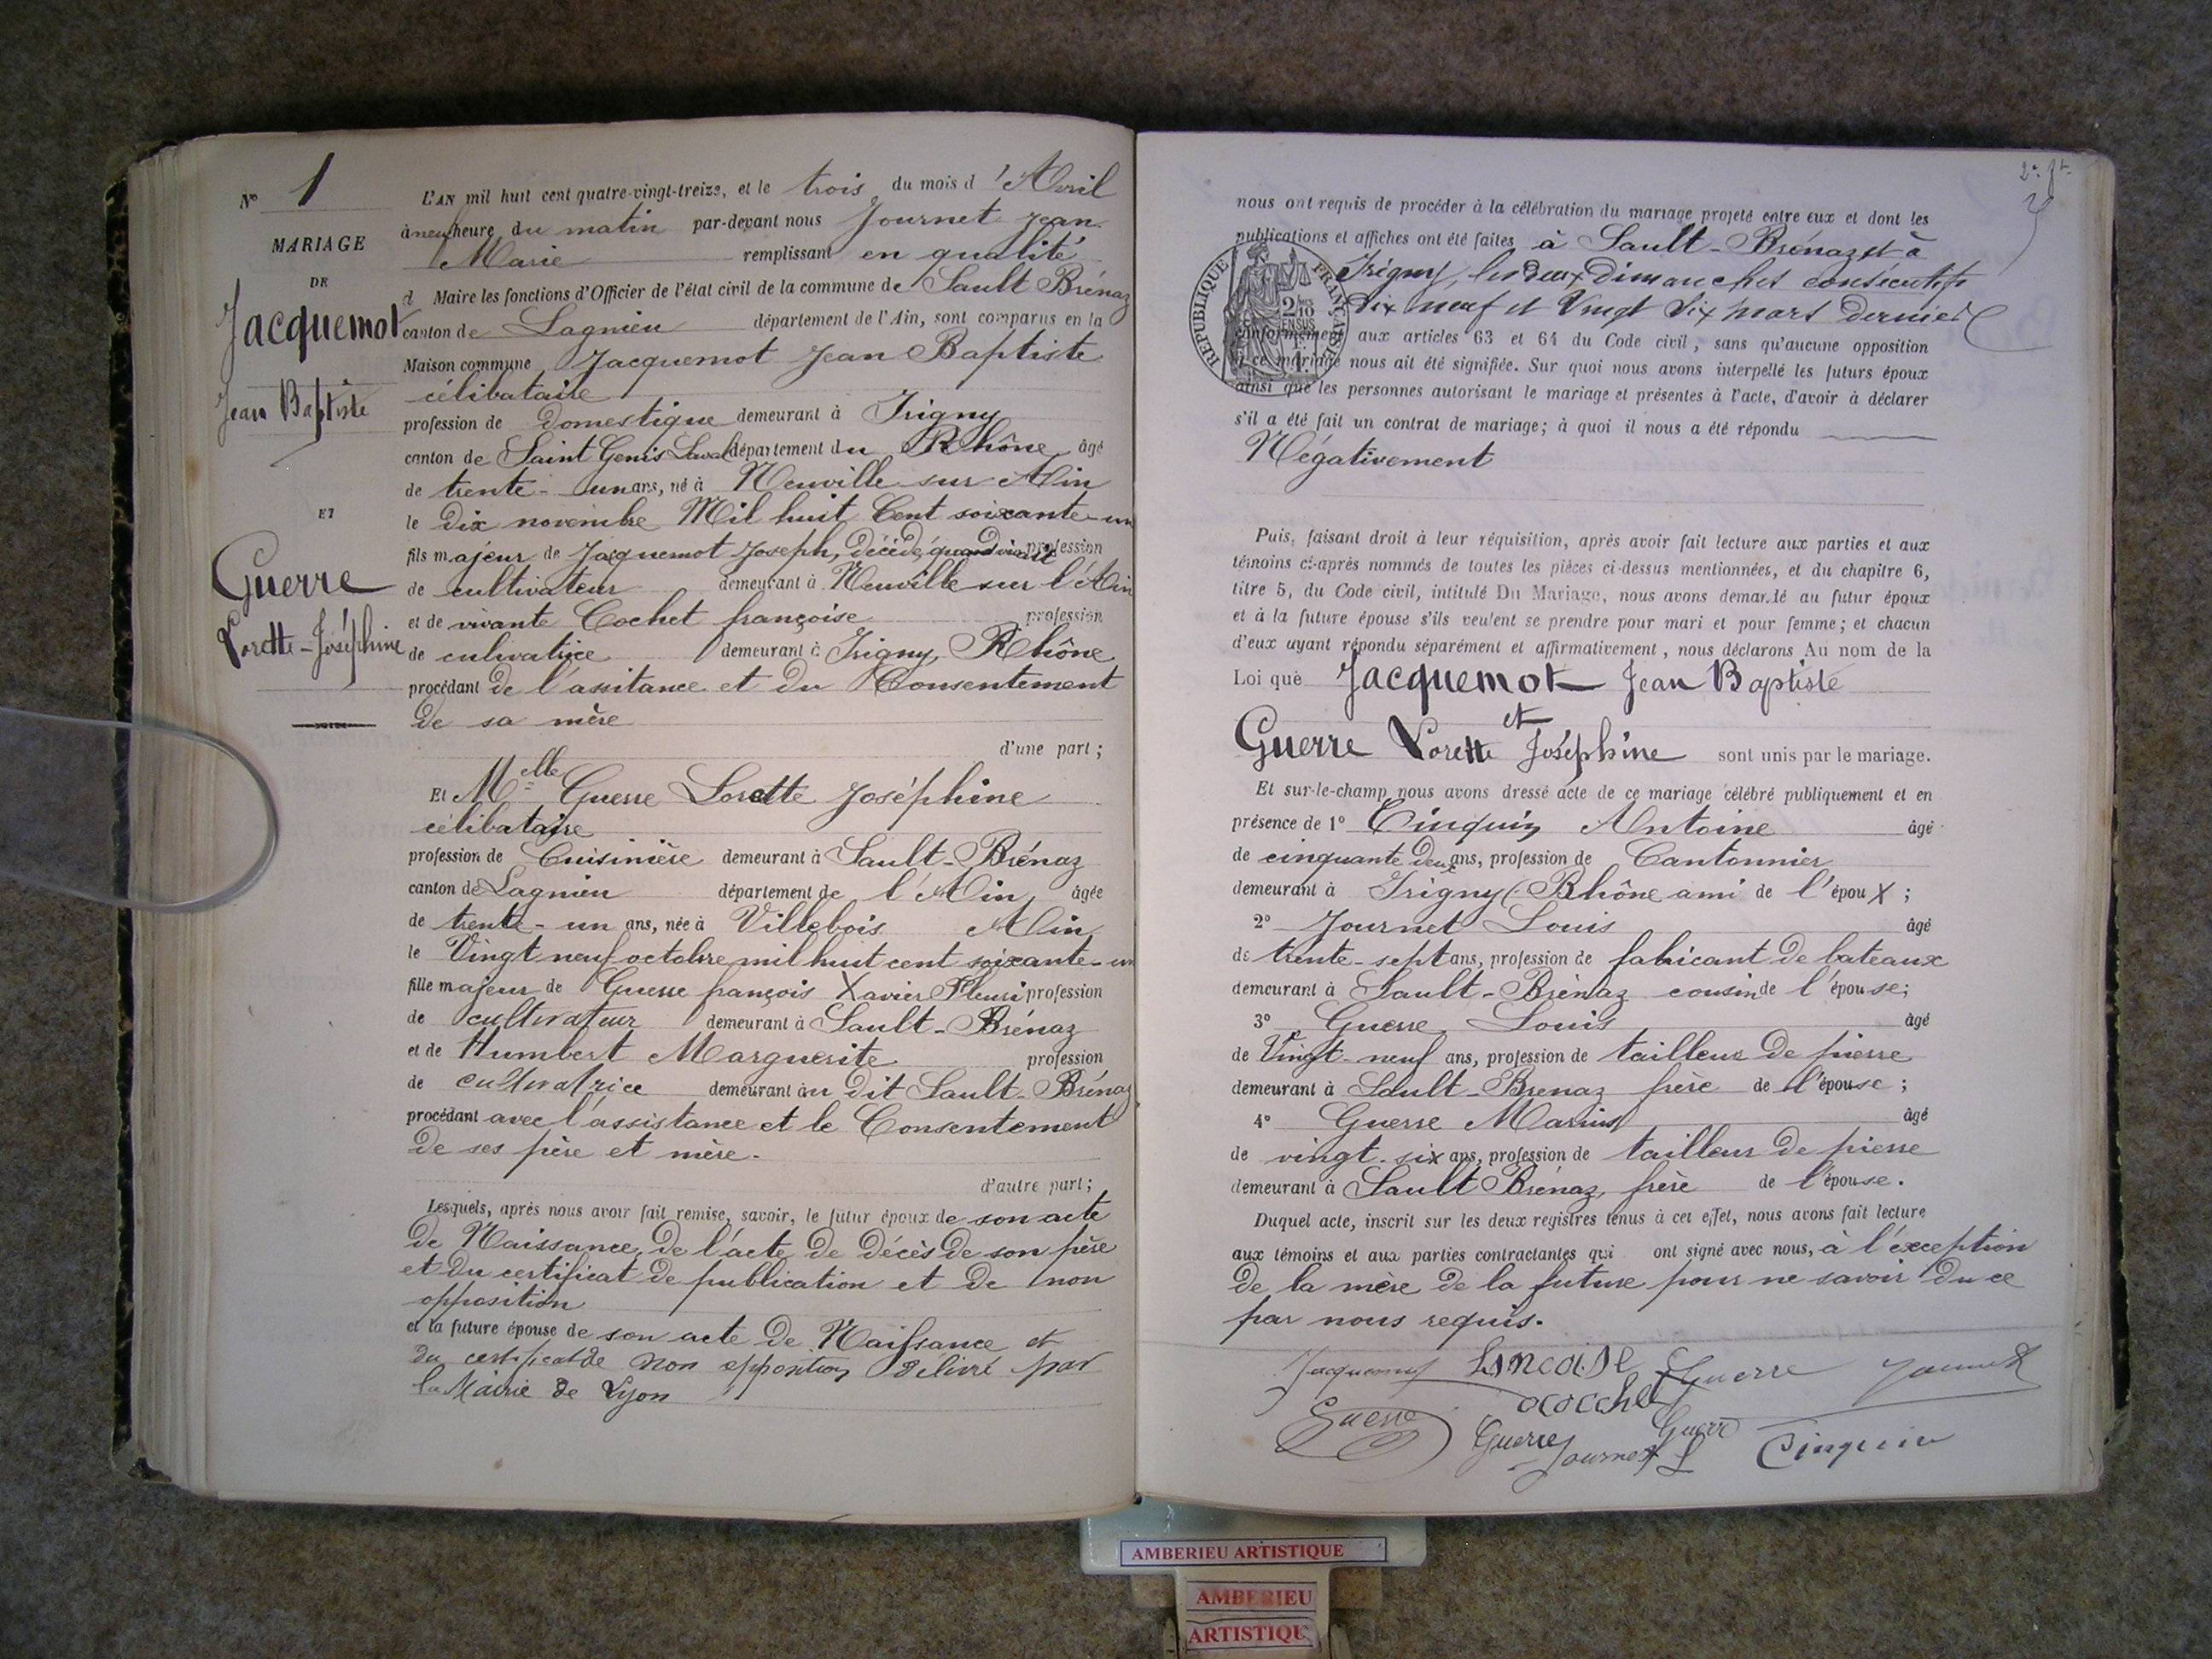 N° 1
MARIAGE
DE
Jacquemot
Jean Baptiste
ET
Guerre
Lorette-Joséphine
L'AN mil huit cent quatre-vingt-treize, et le trois du mois d'Avril
à neuf heure du matin par-devant nous Journet Jean
Marie remplissant en qualité
d Maire les fonctions d'Officier de l'état civil de la commune de Sault Brénaz
canton de Lagnieu département de l'Ain, sont comparus en la
Maison commune Jacquemot Jean Baptiste
célibataire
profession de domestique demeurant à Irigny
canton de Saint Genis Laval département du Rhône âgé
de trente-un ans, né à Neuville sur Ain
le dix novembre Mil huit Cent soixante-un
fils majeur de Jacquemot Joseph, décédé, quand vivait profession
de cultivateur demeurant à Neuville sur l'Ain
et de vivante Cochet françoise profession
de cultivatrice demeurant à Irigny, Rhône
procédant de l'assitance et du Consentement
de sa mère
d'une part;
Et Melle Guerre Lorette Joséphine
célibataire
profession de Cuisinière demeurant à Sault-Brénaz
canton de Lagnieu département de l'Ain âgée
de trente-un ans, née à Villebois Ain
le Vingt neuf octobre mil huit cent soixante-un
fille majeur de Guerre françois Xavier Fleuri profession
de cultivateur demeurant à Sault-Brénaz
et de Humbert Marguerite profession
de cultivatrice demeurant au dit Sault-Brénaz
procédant avec l'assistance et le Consentement
de ses père et mère.
d'autre part;
Lesquels, après nous avoir fait remise, savoir, le futur époux de son acte
de Naissance, de l'acte de décès de son père
et du certificat de publication et de non
opposition
et la future épouse de son acte de Naissance et
du certificat de non opposition délivré par
la Mairie de Lyon
nous ont requis de procéder à la célébration du mariage projeté entre eux et dont les
publications et affiches ont été faites à Sault-Brénaz et à
Irigny, les deux dimanches consécutifs
dix neuf et Vingt Six mars dernier
conformément aux articles 63 et 64 du Code civil, sans qu'aucune opposition
à ce mariage nous ait été signifiée. Sur quoi nous avons interpellé les futurs époux
ainsi que les personnes autorisant le mariage et présentes à l'acte, d'avoir à déclarer
s'il a été fait un contrat de mariage; à quoi il nous a été répondu
Négativement
REPUBLIQUE FRANÇAISE
Puis, faisant droit à leur réquisition, après avoir fait lecture aux parties et aux
témoins ci-après nommés de toutes les pièces ci-dessus mentionnées, et du chapitre 6,
titre 5, du Code civil, intitulé Du Mariage, nous avons demandé au futur époux
et à la future épouse s'ils veulent se prendre pour mari et pour femme; et chacun
d'eux ayant répondu séparément et affirmativement, nous déclarons Au nom de la
Loi que Jacquemot Jean Baptiste
et
Guerre Lorette Joséphine sont unis par le mariage.
Et sur-le-champ nous avons dressé acte de ce mariage célébré publiquement et en
présence de 1° Cinquin Antoine âgé
de cinquante deux ans, profession de Cantonnier
demeurant à Irigny (Rhône ami de l'époux;
2° Journet Louis âgé
de trente-sept ans, profession de fabricant de bateaux
demeurant à Sault-Brénaz cousin de l'épouse;
3° Guerre Louis âgé
de Vingt-neuf ans, profession de tailleur de pierre
demeurant à Sault-Brenaz frère de l'épouse;
4° Guerre Marius âgé
de vingt-six ans, profession de tailleur de pierre
demeurant à Sault Brénaz, frère de l'épouse.
Duquel acte, inscrit sur les deux registres tenus à cet effet, nous avons fait lecture
aux témoins et aux parties contractantes qui ont signé avec nous, à l'exception
de la mère de la future pour ne savoir du ce
par nous requis.
Jacquemot Guerre
Guerre Guerre Guerre
Journet L Cinquin
AMBERIEU ARTISTIQUE
AMBERIEU
ARTISTIQU